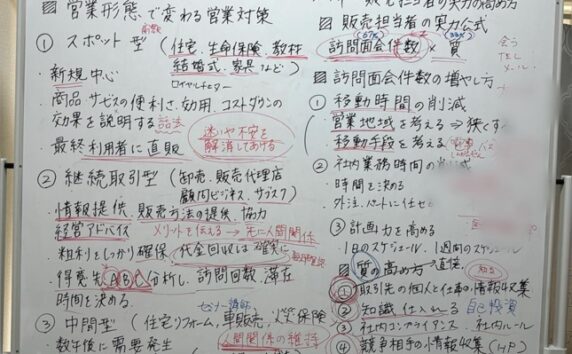 営業形態で変わる営業対策
① スポット型 (住宅、生命保険、教材
結婚式、家具など)
・新規中心
ロイヤルチェスター
・商品・サービスの便利さ、効用、コストダウンの
効果を説明する話法
迷いや不安を
解消してあげる
・最終利用者に直販
② 継続取引型 (卸売、販売代理店
顧問ビジネス、サブスク)
・情報提供、販売方法の提供、協力
経営アドバイス
メリットを伝える→先に人間関係
・粗利をしっかり確保、代金回収は確実に
・得意先ABC分析し、訪問回数、滞在
時間を決める。
セミナー講師
③ 中間型 (住宅リフォーム、車販売、火災保険
・数年後に需要発生
人間関係の維持
販売担当者の実力公式
訪問面会件数 × 質
会う
TEL
メール
訪問面会件数の増やし方
① 移動時間の削減
営業地域を考える⇒狭く
移動手段を考える
② 社内業務時間の削減
・時間を決める
・外注、パートに任せ
③ 計画力を高める
・1日のスケジュール、1週間のスケジュール
質の高め方→直後
① 取引先の個人と仕事の情報収集
② 知識仕入れる 自己投資
③ 社内コンプライアンス、社内ルール
④ 競争相手の情報収集 (HP)